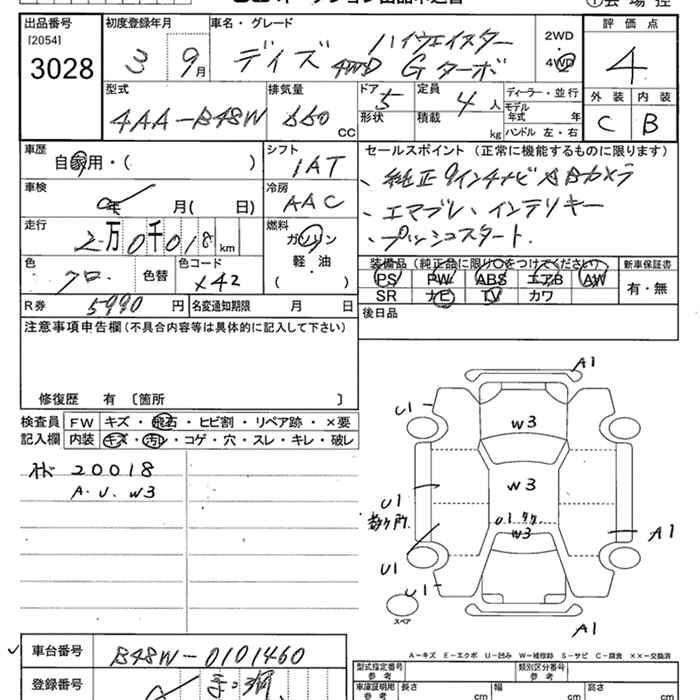 出品番号
[2054]
3028
初度登録年月
3 9月
車名・グレード
デイズ 4WD ハイウェイスター
Gターボ
2WD
4WD
評価点
4
外装 内装
C B
型式
4AA-B48W
排気量
660 CC
ドア 5
形状
定員 4 人
積載 kg
ディーラー・並行
モデル年式 年
ハンドル 左・右
車歴
自家用・( )
シフト
IAT
セールスポイント(正常に機能するものに限ります)
、純正9インチナビ、ABカメラ
、エマブレ、インテリキー
、プッシュスタート.
車検
年 月( 日)
冷房
AAC
走行
2万0千018 km
燃料
ガソリン
軽・油
( )
色
クロ
色替
色コード
X42
装備品(純正品に限り○をつけてください)
PS PW ABS エアB AW
SR ナビ TV カワ
新車保証書
有・無
R券 5990 円
名変通知期限 月 日
後日品
注意事項申告欄(不具合内容等は具体的に記入して下さい)
修復歴 有〔箇所 〕
検査員記入欄
FW キズ・飛石・ヒビ割・リペア跡・×要
内装 キズ・汚レ・コゲ・穴・スレ・キレ・破レ
20018
A.U.W3
A1
U1
W3
W3
U1
U1
W3
A1
U1
U1
スペア
A1
A-キズ E-エクボ U-凹み W-補修跡 S-サビ C-腐食 ××-交換済
車台番号
B48W-0101460
登録番号
型式指定番号
参考
類別区分番号
参考
車庫証明用
参考
長さ cm
幅 cm
高さ cm